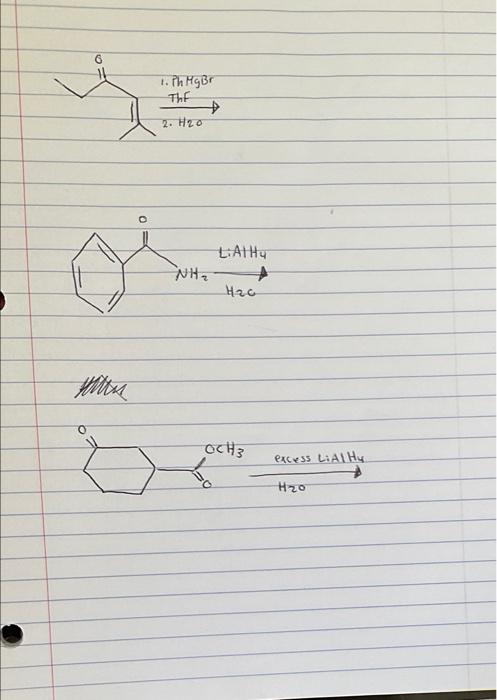 O
1. PhMgBr
Thf
2. H2O
O
LiAlH4
NH2
H2O
O
OCH3
O
excess LiAlH4
H2O